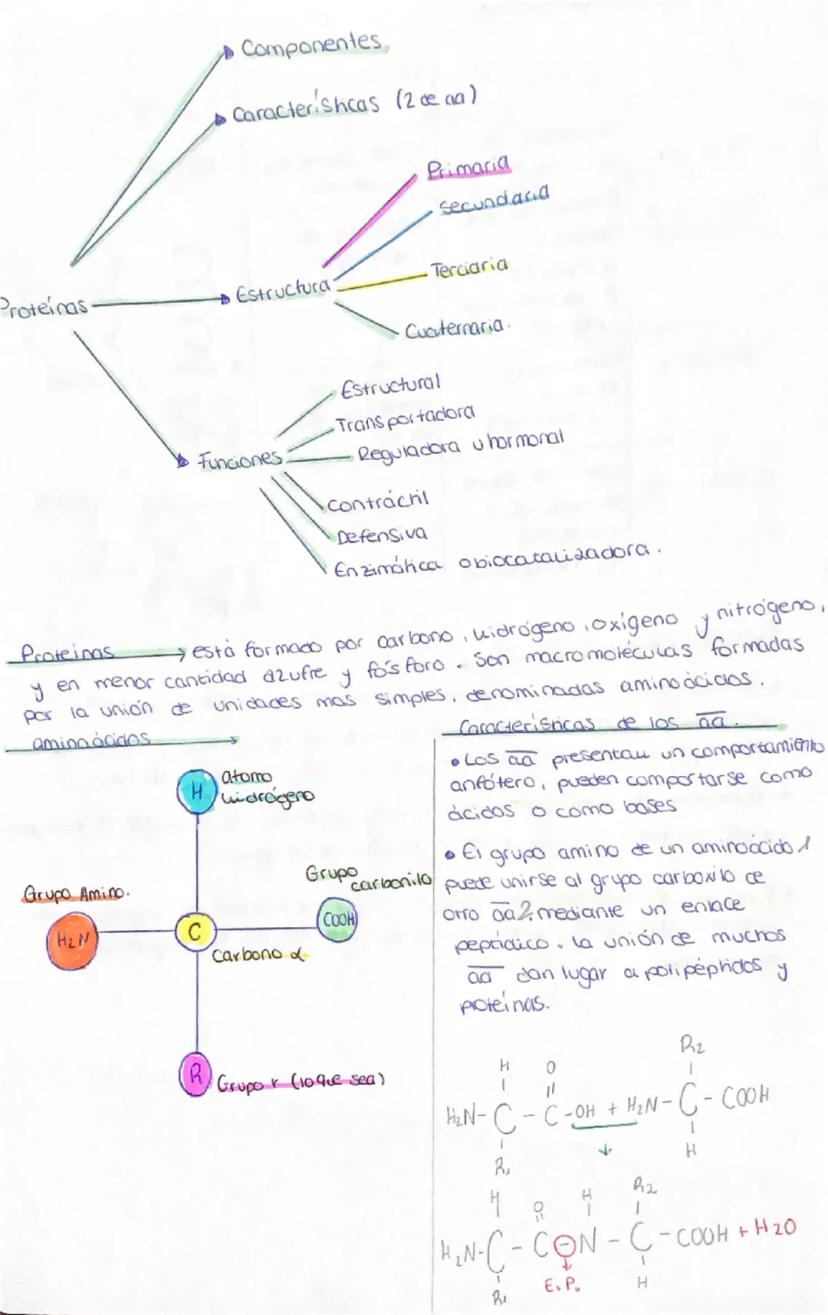 Componentes
Características (2 de aa)
Primaria
Secundaria
Proteínas
Estructura
Terciaria
Cuaternaria.
Estructural
Transportadora
Reguladora u hormonal
Funciones
Contráctil
Defensiva
Enzimática o biocatalizadora.
Proteínas → está formado por carbono, hidrógeno, oxígeno y nitrógeno,
y en menor cantidad azufre y fósforo. Son macromoléculas formadas
por la unión de unidades mas simples, denominadas aminoácidos.
aminoácidos
H
atomo
hidrógeno
Grupo Amino.
H₂N
C
Carbono α
Grupo
carbonilo
COOH
R
Grupo r (lo que sea)
Características de los aa.
• Los aa presentan un comportamiento
anfótero, pueden comportarse como
ácidos o como bases
• El grupo amino de un aminoácido 1
puede unirse al grupo carboxilo de
otro aa 2 mediante un enlace
peptídico. la unión de muchos
aa dan lugar a polipéptidos y
proteínas.
H O R₂
H₂N - C - C - OH + H₂N - C - COOH
R₁ H
H O H R₂
H₂N - C - C - N - C - COOH + H₂O
R₁ E.P. H